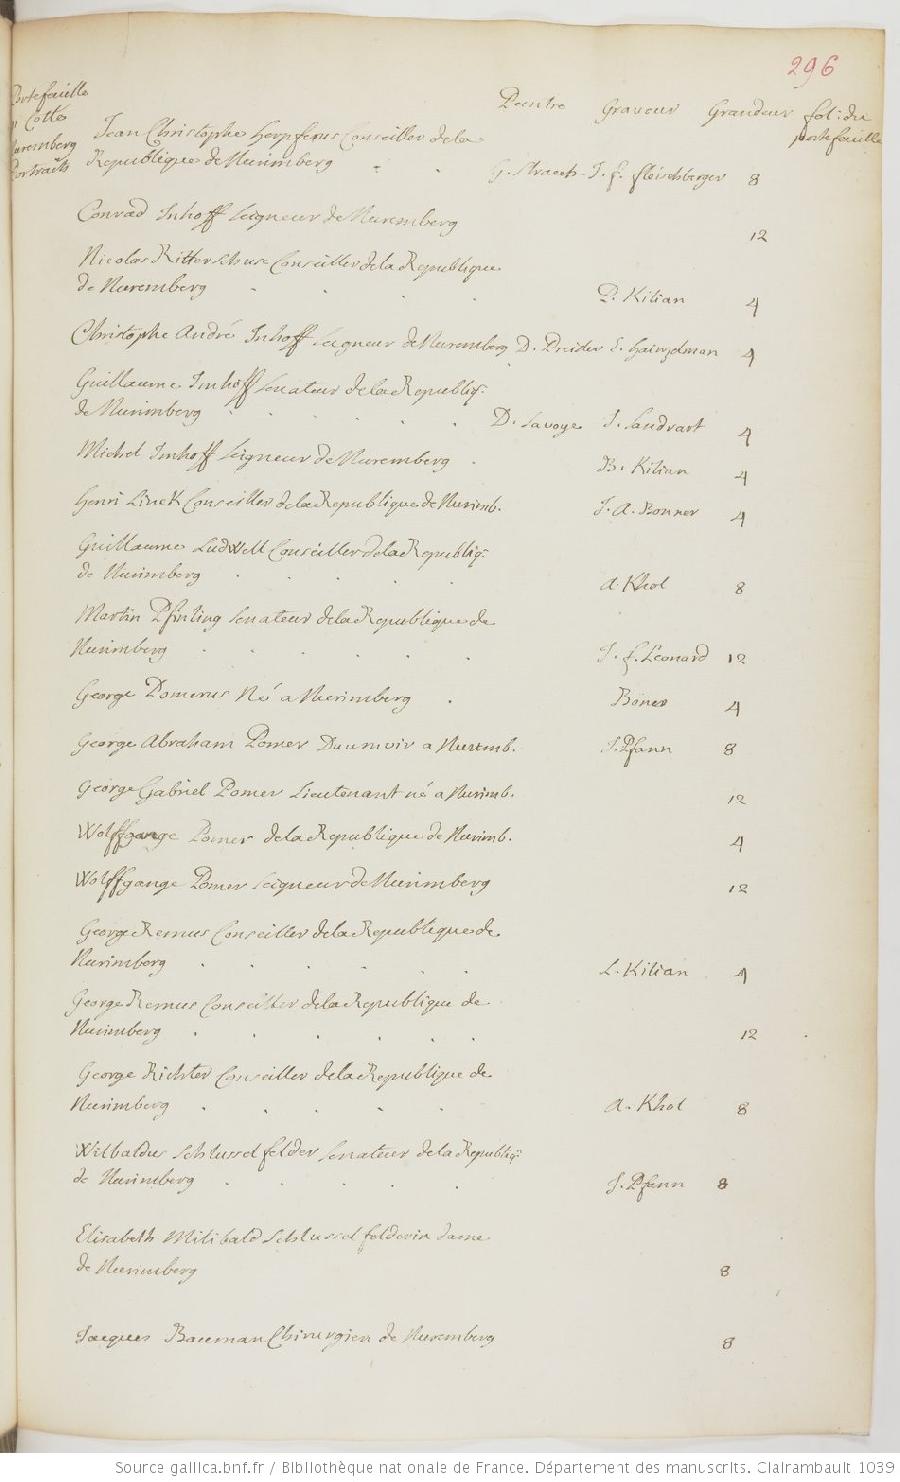 296
Portefeuille
Cotté
Nuremberg
Portraits
Peintre Graveur Grandeur fol: du
portefeuille
Jean Christophe Herpferus Conseiller de la
Republique de Nurimberg G. Strauch J. f. fleischberger 8
Conrad Inhoff Seigneur de Nuremberg 12
Nicolas Rittershuse Conseiller de la Republique
de Nuremberg P. Kilian 4
Christophe André Inhoff Seigneur de Nuremberg D. Preider E. hainzelman 4
Guillaume Imhoff Senateur de la Republiq:
de Nurimberg D. Savoye J. Sandrart 4
Michel Imhoff Seigneur de Nuremberg B. Kilian 4
Henri Linck Conseiller de la Republique de Nurimb. J. A. Bonner 4
Guillaume Ludwell Conseiller de la Republiq:
de Nurimberg A Khol 8
Martin Pfintling Senateur de la Republique de
Nurimberg J. f. Leonard 12
George Pomerus Né a Nurimberg Boner 4
George Abraham Pomer Duumvir a Nuremb. J. Pfann 8
George Gabriel Pomer Lieutenant né a Nurimb. 12
Wolffgange Pomer de la Republique de Nurimb. 4
Wolffgange Pomer Seigneur de Nurimberg 12
George Remus Conseiller de la Republique de
Nurimberg L. Kilian 4
George Remus Conseiller de la Republique de
Nurimberg 12
George Richter Conseiller de la Republique de
Nurimberg A. Khol 8
Wilbaldus Schlusselfelder Senateur de la Republiq:
de Nurimberg J. Pfann 8
Elisabeth Milibald Schlusselfelderin dame
de Nurimberg 8
Jacques Bauman Chirurgien de Nuremberg 8
Source gallica.bnf.fr / Bibliothèque nationale de France. Département des manuscrits. Clairambault 1039